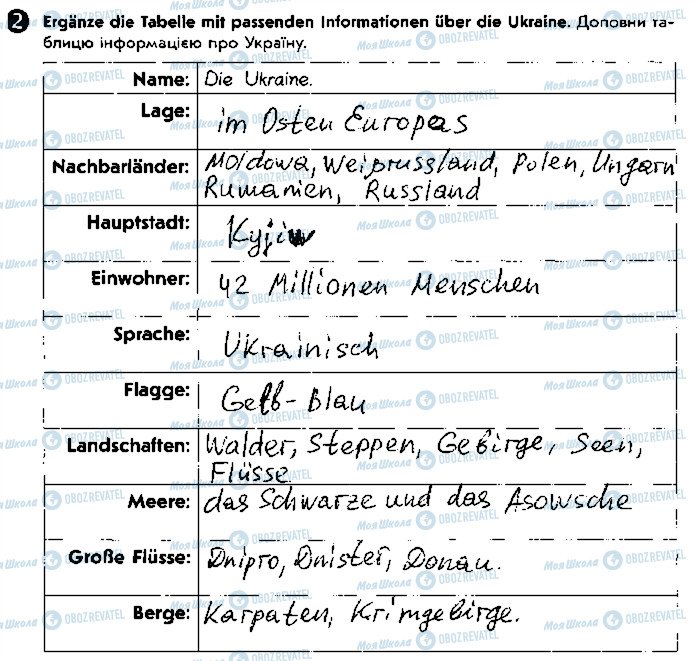 2 Ergänze die Tabelle mit passenden Informationen über die Ukraine. Доповни та-
блицю інформацією про Україну.
Name: Die Ukraine.
Lage: im Osten Europas
Nachbarländer: Moldowa, Weiβrussland, Polen, Ungarn
Rumanien, Russland
Hauptstadt: Kyjiw
Einwohner: 42 Millionen Menschen
Sprache: Ukrainisch
Flagge: Gelb-blau
Landschaften: Walder, Steppen, Gebirge, Seen,
Flüsse
Meere: das Schwarze und das Asowsche
Große Flüsse: Dnipro, Dnister, Donau.
Berge: Karpaten, Krimgebirge.
Моя Школа OBOZREVATEL